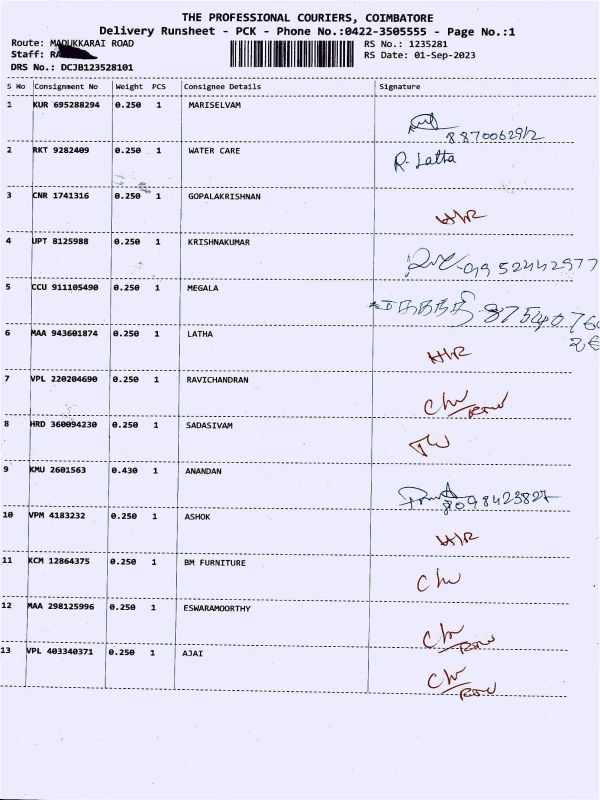 THE PROFESSIONAL COURIERS, COIMBATORE
Delivery Runsheet - PCK - Phone No.:0422-3505555 - Page No.:1
Route: MADUKKARAI ROAD RS No.: 1235281
Staff: RS Date: 01-Sep-2023
DRS No.: DCJB123528101
S No Consignment No Weight PCS Consignee Details Signature
1 KUR 695288294 0.250 1 MARISELVAM
8870062912
2 RKT 9282409 0.250 1 WATER CARE R. Latta
3 CNR 1741316 0.250 1 GOPALAKRISHNAN
H/R
4 UPT 8125988 0.250 1 KRISHNAKUMAR
9952442977
5 CCU 911105490 0.250 1 MEGALA
87540760
6 MAA 943601874 0.250 1 LATHA
H/R
7 VPL 220204690 0.250 1 RAVICHANDRAN
8 HRD 360094230 0.250 1 SADASIVAM
9 KMU 2601563 0.430 1 ANANDAN
8098423827
10 VPM 4183232 0.250 1 ASHOK
H/R
11 KCM 12864375 0.250 1 BM FURNITURE
12 MAA 298125996 0.250 1 ESWARAMOORTHY
13 VPL 403340371 0.250 1 AJAI